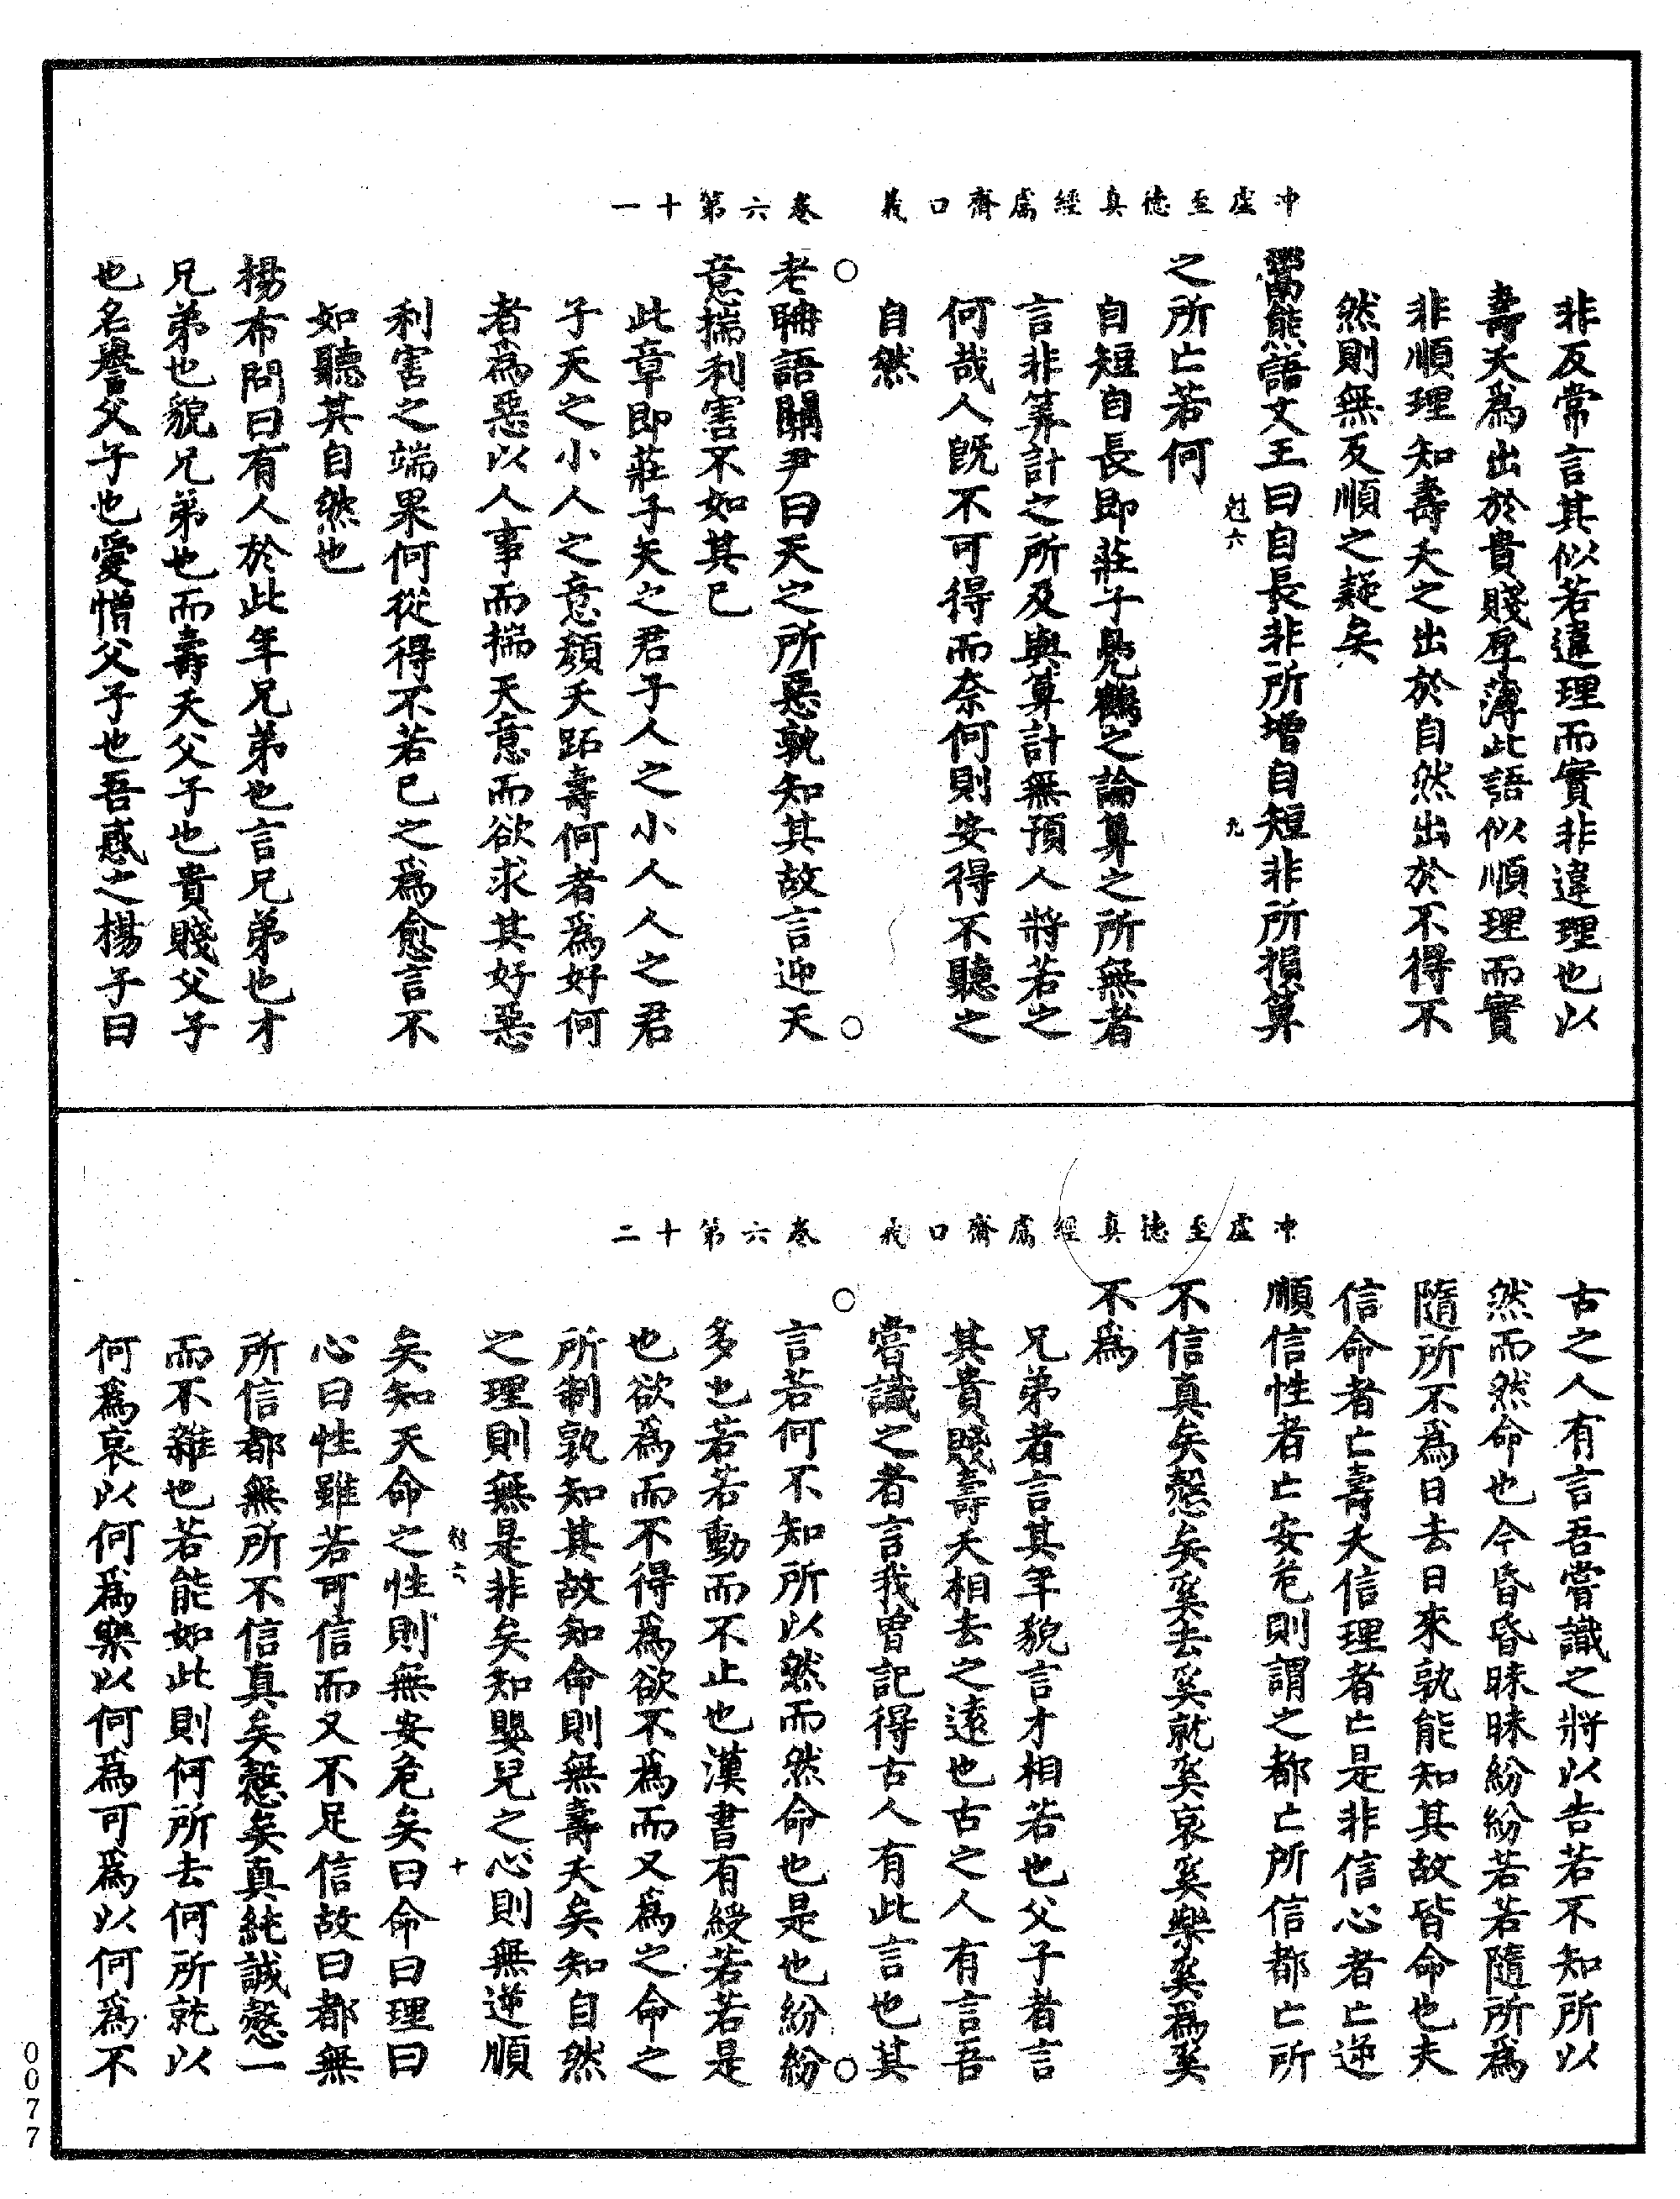 冲虛至德真經鬳齋口義　卷六第十一
非反常言其似若違理而實非違理也以
壽夭為出於貴賤厚薄此語似順理而實
非順理知壽夭之出於自然出於不得不
然則無反順之疑矣
鬻熊語文王曰自長非所增自短非所損算
之所亡若何
尅六
九
自短自長即莊子鳧鶴之論算之所無者
言非筭計之所及與算計無預人將若之
何哉人既不可得而奈何則安得不聽之
自然
老聃語關尹曰天之所惡孰知其故言迎天
意揣利害不如其已
此章即莊子天之君子人之小人人之君
子天之小人之意顏夭跖壽何者為好何
者為惡以人事而揣天意而欲求其好惡
利害之端果何從得不若已之為愈言不
如聽其自然也
楊布問曰有人於此年兄弟也言兄弟也才
兄弟也貌兄弟也而壽夭父子也貴賤父子
也名譽父子也愛憎父子也吾惑之楊子曰
冲虛至德真經鬳齋口義　卷六第十二
古之人有言吾嘗識之將以告若不知所以
然而然命也今昏昏昧昧紛紛若若隨所為
隨所不為日去日來孰能知其故皆命也夫
信命者亡壽夭信理者亡是非信心者亡逆
順信性者亡安危則謂之都亡所信都亡所
不信真矣愨矣奚去奚就奚哀奚樂奚為奚
不為
兄弟者言其年貌言才相若也父子者言
其貴賤壽夭相去之遠也古之人有言吾
嘗識之者言我曾記得古人有此言也其
言若何不知所以然而然命也是也紛紛
多也若若動而不止也漢書有綬若若是
也欲為而不得為欲不為而又為之命之
所制孰知其故知命則無壽夭矣知自然
之理則無是非矣知嬰兒之心則無逆順
尅六
十
矣知天命之性則無安危矣曰命曰理曰
心曰性雖若可信而又不足信故曰都無
所信都無所不信真矣愨矣真純誠愨一
而不雜也若能如此則何所去何所就以
何為哀以何為樂以何為可為以何為不
0077